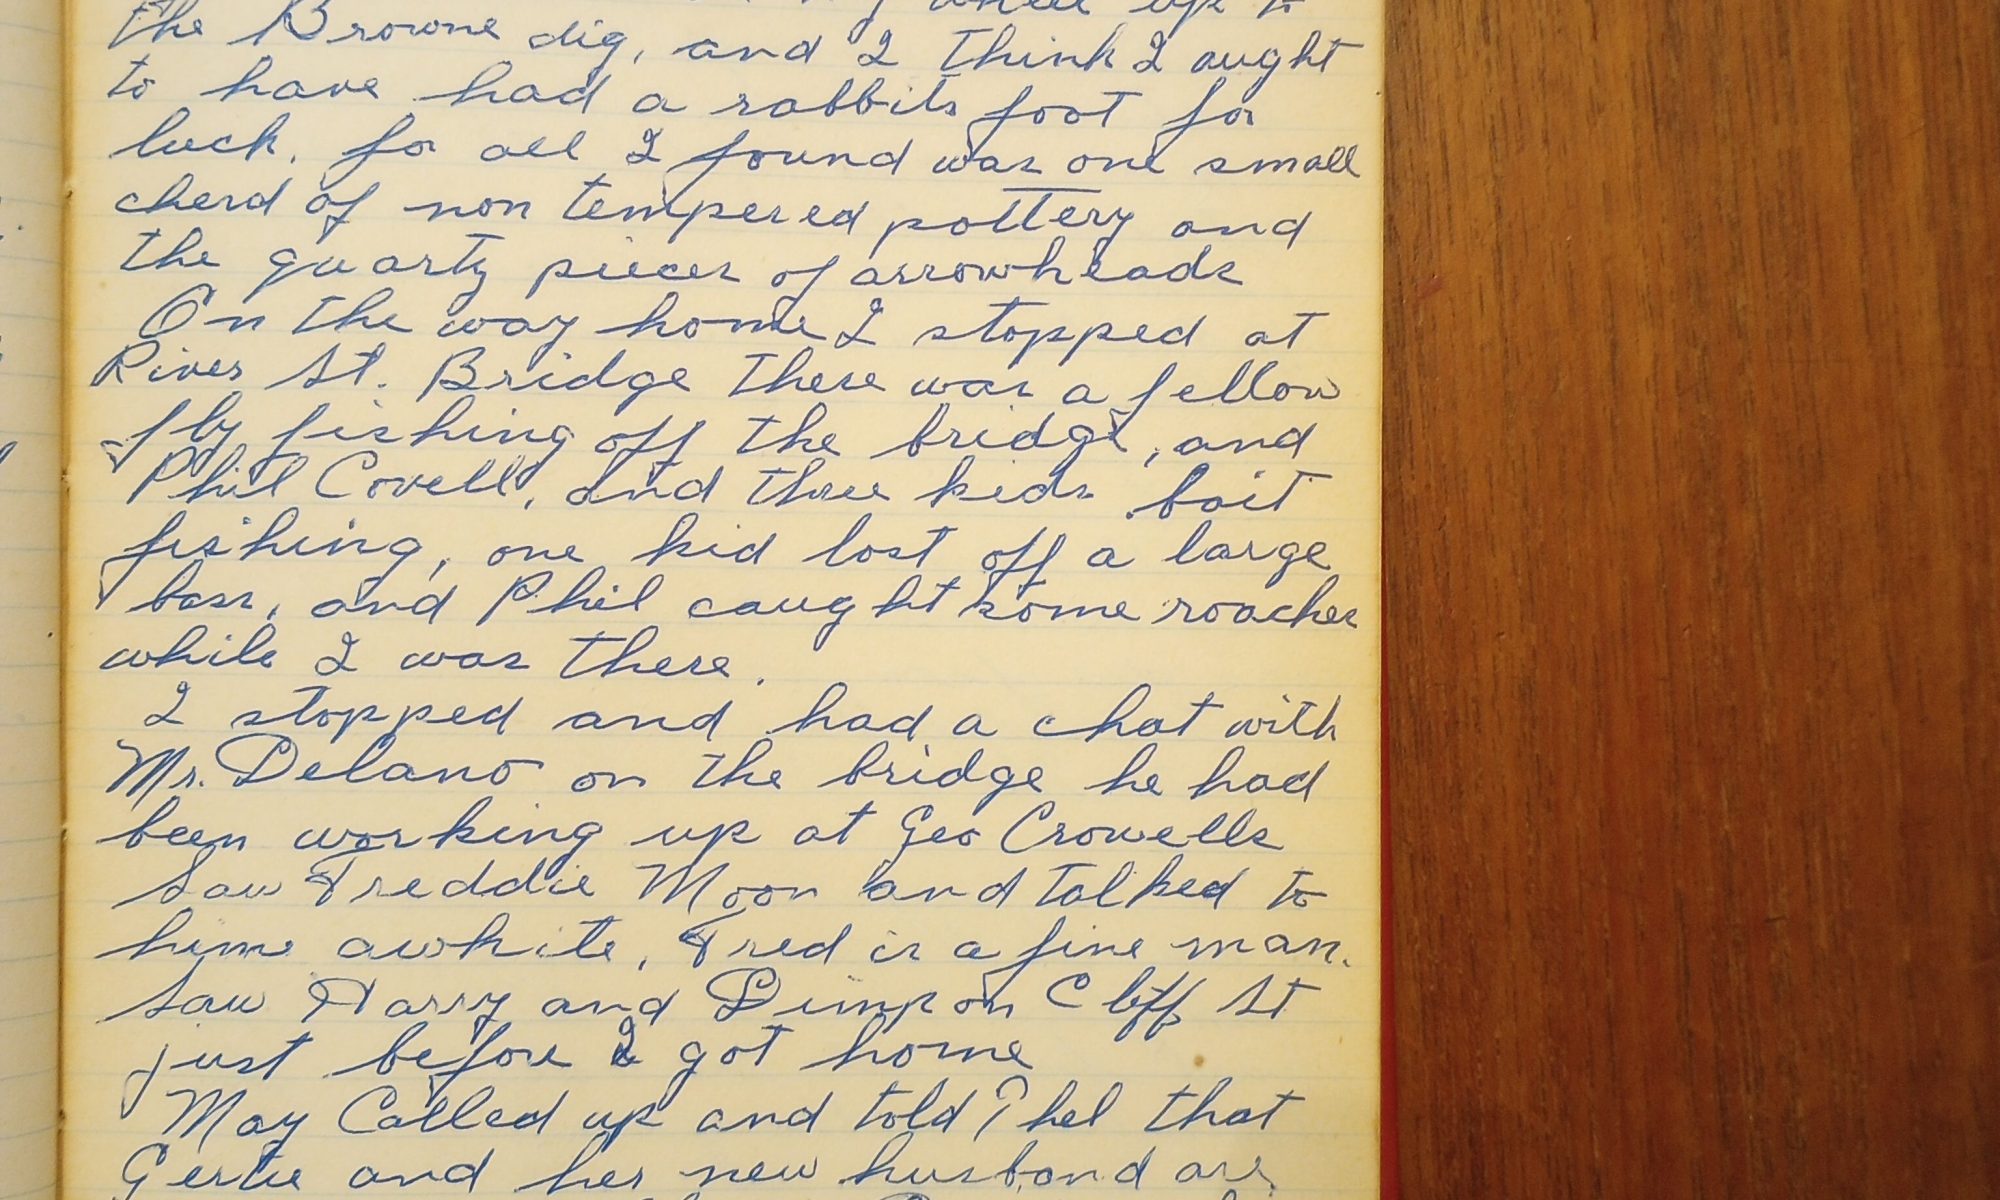 up to
the Browne dig, and I think I aught
to have had a rabbits foot for
luck, for all I found was one small
cherd of non tempered pottery and
the quartz pieces of arrowheads
On the way home I stopped at
River St. Bridge there was a fellow
fly fishing off the bridge, and
Phil Covell, and three kids bait
fishing, one kid lost off a large
bass, and Phil caught some roaches
while I was there.
I stopped and had a chat with
Mr. Delano on the bridge he had
been working up at Geo Crowells
Saw Freddie Moon and talked to
him awhile, Fred is a fine man.
Saw Harry and Dimp on Cliff St
just before I got home
May Called up and told Thel that
Gertie and her new husband are